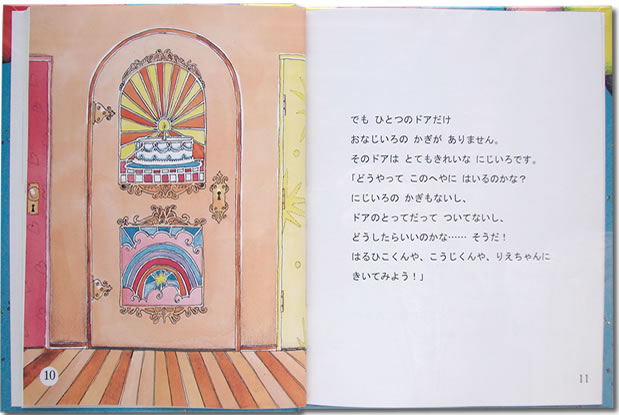 でも ひとつのドアだけ
おなじいろの かぎが ありません。
そのドアは とてもきれいな にじいろです。
「どうやって このへやに はいるのかな?
にじいろの かぎもないし、
ドアのとってだって ついてないし、
どうしたらいいのかな…… そうだ!
はるひこくんや、こうじくんや、りえちゃんに
きいてみよう!」
10
11